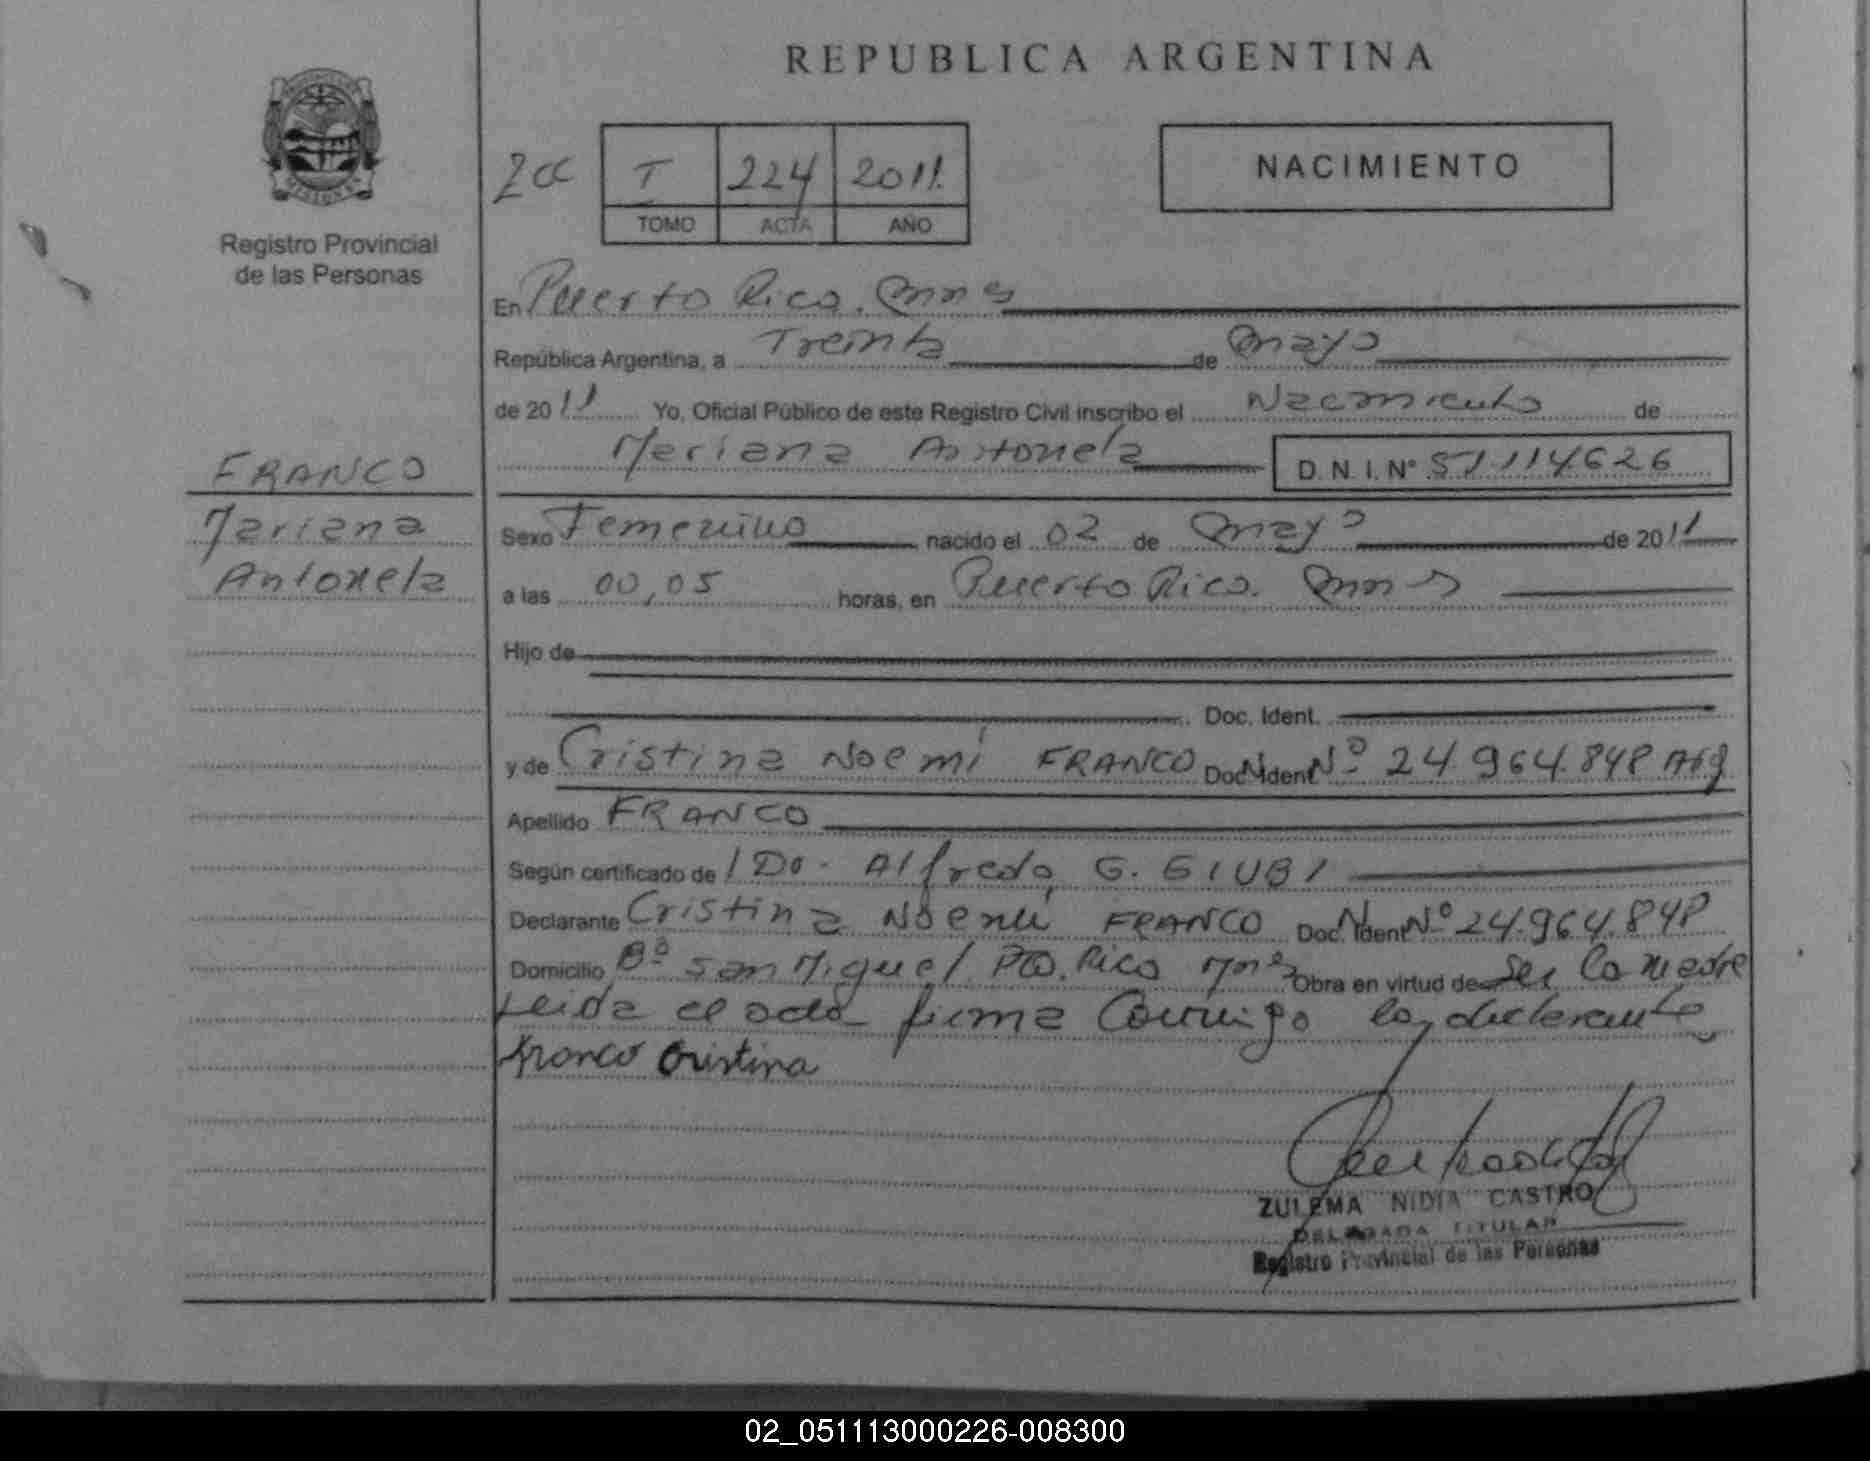 REPUBLICA ARGENTINA
2cc
I 224 2011.
TOMO ACTA AÑO
NACIMIENTO
PROVINCIA DE
MISIONES
Registro Provincial
de las Personas
FRANCO
Mariana
Antonela
En Puerto Rico. Mnes
República Argentina, a Treinta de Mayo
de 2011 Yo, Oficial Público de este Registro Civil inscribo el Nacimiento de
Mariana Antonela D. N. I. N° 51.114.626
Sexo Femenino nacido el 02 de Mayo de 2011
a las 00,05 horas, en Puerto Rico. Mnes
Hijo de
Doc. Ident.
y de Cristina Noemí FRANCO Doc. Ident. Nº 24.964.848 Arg
Apellido FRANCO
Según certificado de Alfredo G. GIUBI
Declarante Cristina Noemí FRANCO Doc. Ident. Nº 24.964.848
Domicilio Bº San Miguel Pto. Rico Mnes Obra en virtud de Ser la madre
Leida el acta firma Conmigo la declarante
Franco Cristina
ZULEMA NIDIA CASTRO
DELEGADA TITULAR
Registro Provincial de las Personas
02_051113000226-008300